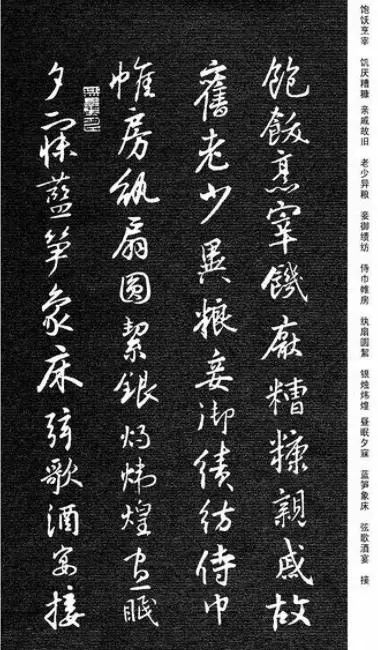 饱饫烹宰 饥厌糟糠 亲戚故旧 老少异粮 妾御绩纺 侍巾帷房 纨扇圆絜 银烛炜煌 昼眠夕寐 蓝笋象床 弦歌酒宴 接
飽飫烹宰饑厭糟糠親戚故
舊老少異粮妾御績紡侍巾
帷房紈扇圓絜銀燭煒煌晝眠
夕寐藍笋象床弦歌酒宴接